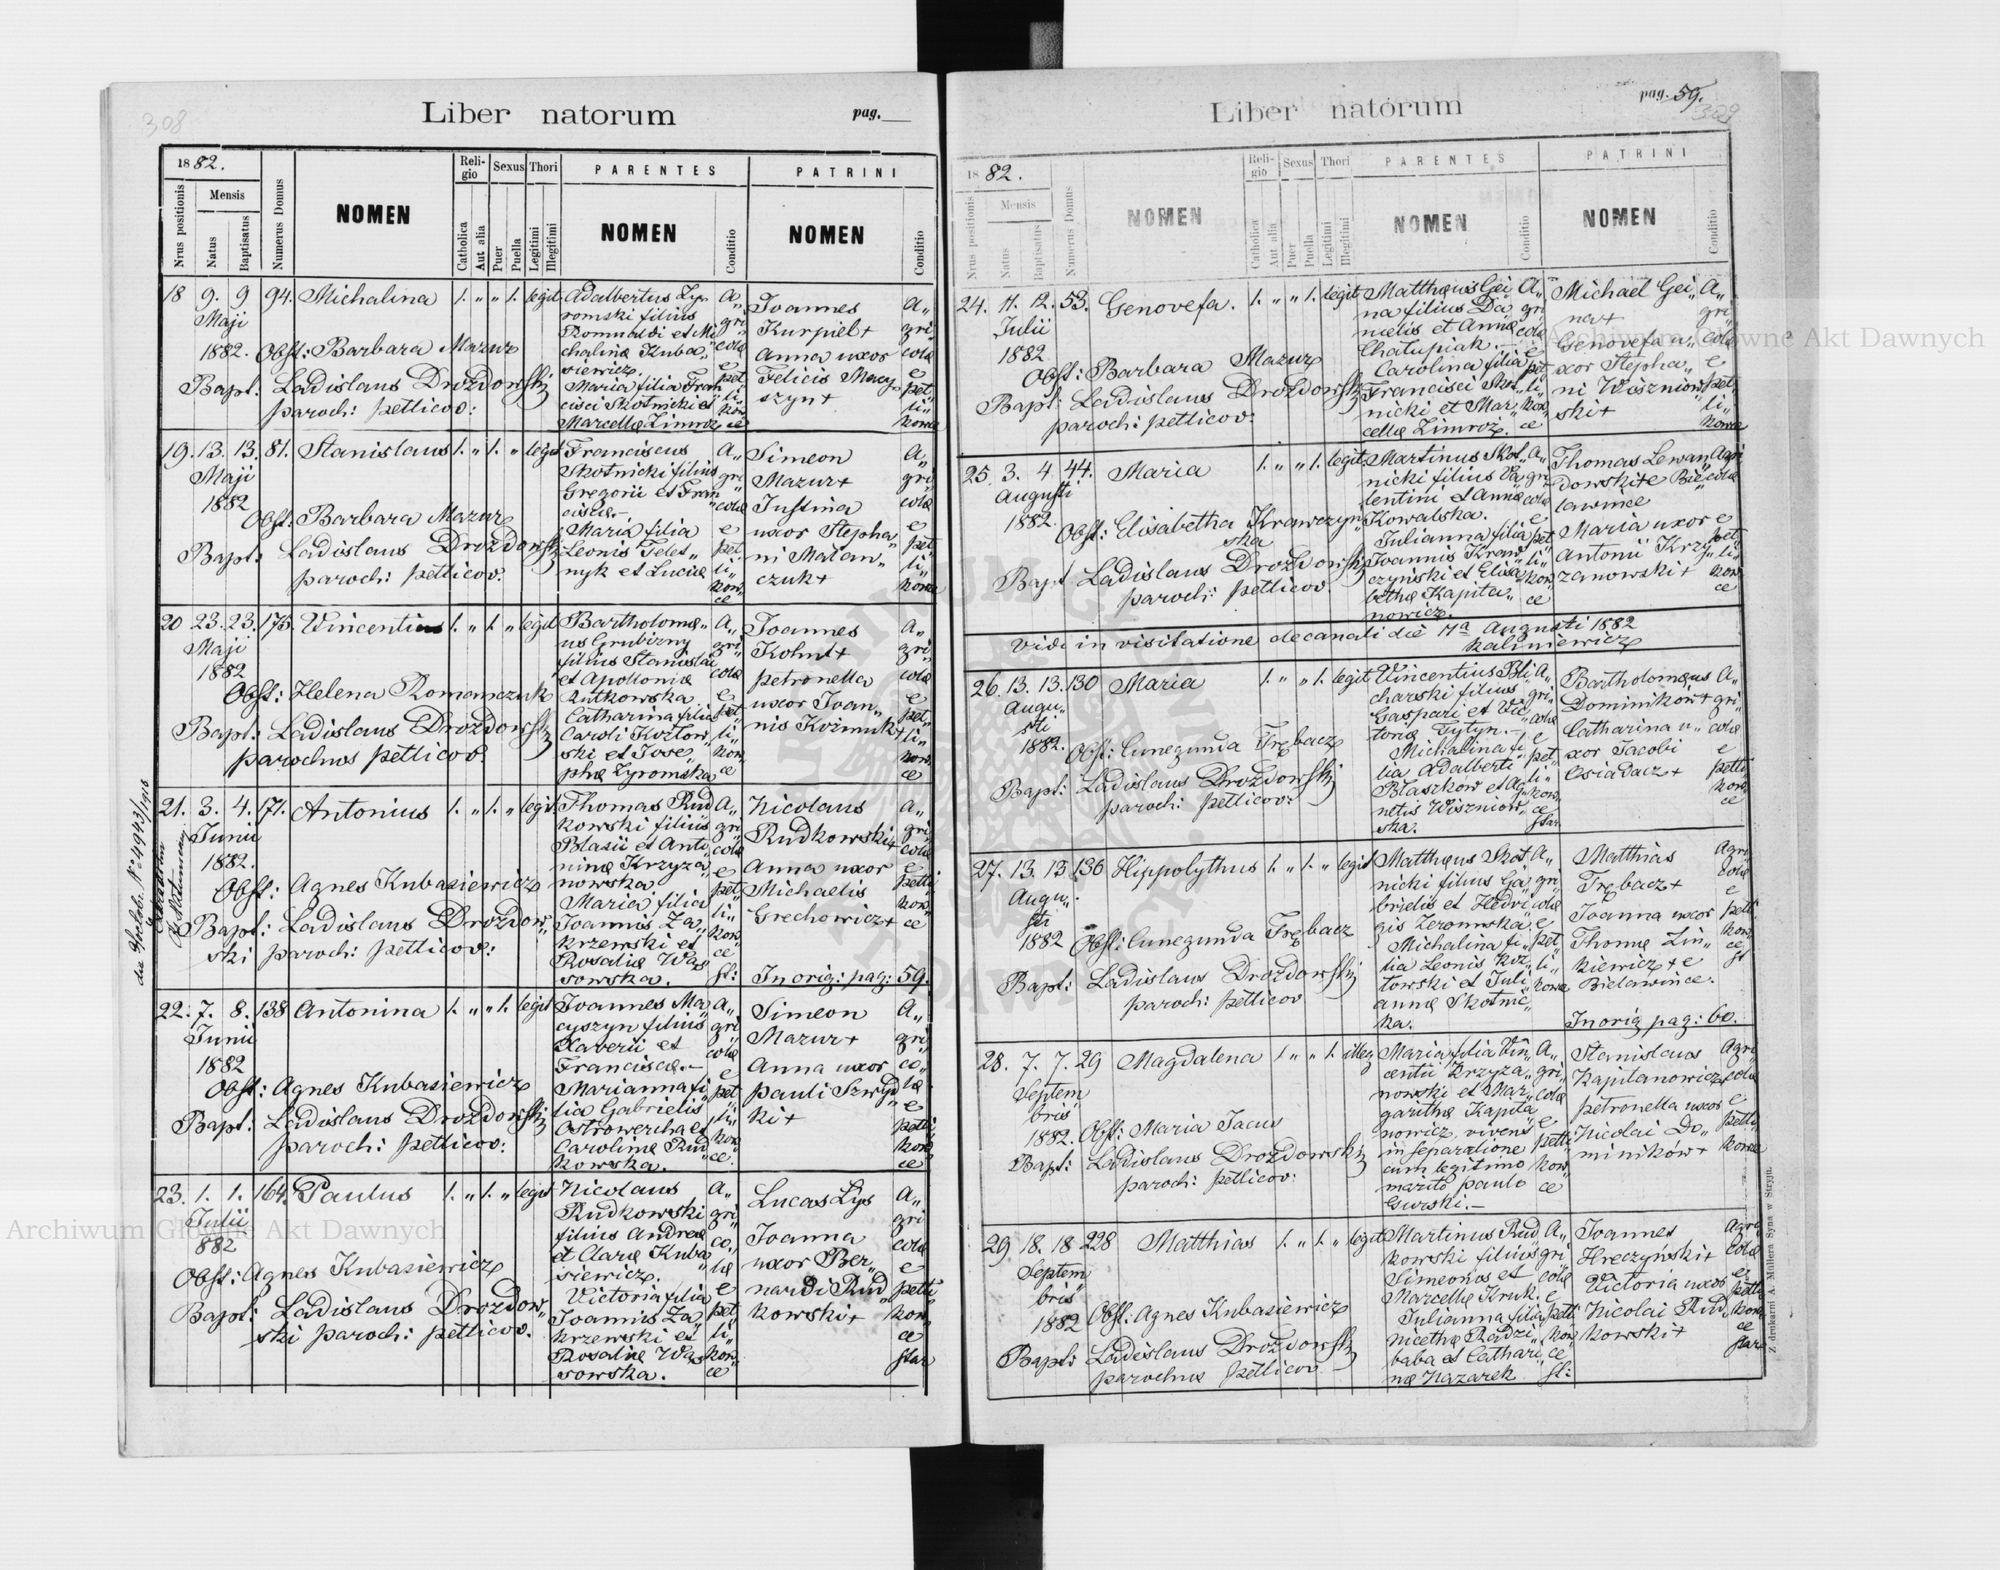 308
Liber natorum
pag.
1882.
Nrus positionis
Mensis
Natus
Baptisatus
Numerus Domus
NOMEN
Religio
Catholica
Aut alia
Sexus
Puer
Puella
Thori
Legitimi
Illegitimi
PARENTES
NOMEN
Conditio
PATRINI
NOMEN
Conditio
18 9. 9 94. Michalina 1. „ „ 1. legit
Maji
1882. Obst: Barbara Mazur
Bapt: Ladislaus Drozdowski
paroch: petlicov:
Adalbertus Zy„
romski filius
Romualdi et Mi
chalinæ Kuba„
siewicz.
Maria filia Fran
cisci Skotnicki et
Marcellæ Zimroz
A„
gri„
colæ
e
pet„
li„
kow„
ce
Joannes
Kurpiel+
Anna uxor
Felicis Macy„
szyn+
A„
gri„
colæ
e
pet„
li„
kowce
19. 13. 13. 81. Stanislaus 1. „ 1. „ legit
Maji
1882
Obst: Barbara Mazur
Bapt: Ladislaus Drozdowski
paroch: petlicov.
Franciscus
Skotnicki filius
Gregorii et Fran
ciscæ.–
Maria filia
Leonis Teles„
nyk et Luciæ
A„
gri„
colæ
e
pet„
li„
kow„
ce
Simeon
Mazur+
Justina
uxor Stepha„
ni Matan„
czuk+
A„
gri
colæ
e
pet„
li„
kowce
20 23. 23. 175. Vincentius 1. „ 1. „ legit
Maji
1882
Obst: Helena Romanczuk
Bapt: Ladislaus Drozdowski
parochus petlicov.
Bartholomæ„
us Grubizny
filius Stanislai
et Apolloniæ
Rutkowska
Catharina filia
Caroli Kozlow„
ski et Jose„
phæ Zyromska
A„
gri„
colæ
e
pet„
li„
kow„
ce
Joannes
Kohut+
Petronella
uxor Joan„
nis Kozmuk+
A„
gri„
colæ
e
pet„
li„
kow„
ce
21. 3. 4. 171. Antonius 1. „ 1. „ legit
Junii
1882.
Obst: Agnes Kubasiewicz
Bapt: Ladislaus Drozdow„
ski paroch: petlicov:
Thomas Rud
kowski filius
Blasii et Anto
ninæ Krzyza„
nowska.
Maria filia
Joannis Za„
krzewski et
Rosaliæ Was
sowska.
A„
gri
colæ
e
pet„
li„
kow„
ce
st:
Nicolaus
Rudkowski+
Anna uxor
Michaelis
Grechowicz+
In orig: pag: 59.
A„
gri„
colæ
e
petli
kow„
ce
22. 7. 8. 138 Antonina 1. „ „ 1. legit
Junii
1882
Obst: Agnes Kubasiewicz
Bapt: Ladislaus Drozdowski
paroch: petlicov:
Joannes Ma„
cyszyn filius
Xaverii et
Franciscæ.–
Marianna fi„
lia Gabrielis
Ostrowercha et
Carolinæ Rud„
kowska.
A„
gri„
colæ
e
pet„
li„
kow„
ce
Simeon
Mazur+
Anna uxor
Pauli Szwyd„
ki+
A„
gri„
co„
læ
e
petli
kow„
ce
23. 1. 1. 164. Paulus 1. „ 1. „ legit
Julii
882
Obst: Agnes Kubasiewicz
Bapt: Ladislaus Drozdow„
ski paroch: petlicov.
Nicolaus
Rudkowski
filius Andreæ
et Claræ Kuba
siewicz.
Victoria filia
Joannis Za„
krzewski et
Rosaliæ Was
sowska.
A„
gri„
co„
læ
e
pet„
li„
kow„
ce
Lucas Lys
Joanna
uxor Ber„
nardi Rud„
kowski+
A„
gri
colæ
e
petli
kow„
ce
star
pag. 59.
309
Liber natorum
1882.
Nrus positionis
Mensis
Natus
Baptisatus
Numerus Domus
NOMEN
Religio
Catholica
Aut alia
Sexus
Puer
Puella
Thori
Legitimi
Illegitimi
PARENTES
NOMEN
Conditio
PATRINI
NOMEN
Conditio
24. 11. 12. 53. Genovefa. 1. „ „ 1. legit
Julii
1882
Obst: Barbara Mazur
Bapt: Ladislaus Drozdowski
paroch: petlicov:
Matthæus Gei
na filius Da„
nielis et Annæ
Chalupiak.–
Carolina filia
Francisci Skot„
nicki et Mar„
cellæ Zimroz.
A„
gri
colæ
e
pet„
li„
kow„
ce
Michael Gei„
na+
Genovefa u„
xor Stepha„
ni Wiszniow„
ski+
A„
gri„
colæ
e
pet„
li„
kowce
25. 3. 4. 44. Maria 1. „ „ 1. legit
Augusti
1882.
Obst: Elisabetha Krawczyn„
ska
Bapt Ladislaus Drozdowski
paroch: petlicov.
Martinus Skot„
nicki filius Va
lentini et Annæ
Kowalska.
Julianna filia
Joannis Kraw„
czynski et Elisa
bethæ Kapita„
nowicz.
A„
gri
colæ
e
pet„
li„
kow„
ce
Thomas Lewan„
dowski+e Bie„
lawince
Maria uxor
Antonii Krzy„
zanowski+
Agri
colæ
e
pet„
li„
kow
ce
Vidi in visitatione decanali die 17a Augusti 1882
Kaliniewicz
26. 13. 13. 130 Maria 1. „ „ 1. legit
Augu„
sti
1882.
Obst: Cunegunda Trębacz
Bapt: Ladislaus Drozdowski
paroch: petlicov:
Vincentius Bli
charski filius
Gaspari et Vic„
toriæ Tytyn.–
Michalina fi„
lia Adalberti
Blaszków et Ag„
netis Wiszniow„
ska.
A„
gri„
colæ
e
pet„
li„
kow„
ce
star
Bartholomæus
Dominików+
Catharina u„
xor Jacobi
Csiadacz+
A„
gri„
colæ
e
petli
kow„
ce
27. 13. 13 136 Hippolythus 1. „ 1. „ legit
Augu„
sti
1882
Obst: Cunegunda Trębacz
Bapt: Ladislaus Drozdowski
paroch: petlicov
Matthæus Skot„
nicki filius Ga„
brielis et Hedvi
gis Zeromska.
Michalina fi„
lia Leonis Koz„
lowski et Juli„
annæ Skotnic„
ka.
A„
gri
colæ
e
pet„
li„
kowce
Matthias
Trębacz+
Joanna uxor
Thomæ Zin„
kiewicz+e
Bielawince.
In orig pag: 60.
Agri
colæ
e
petli
kow„
ce
st
28. 7. 7. 29 Magdalena 1. „ „ 1. illeg
Septem
bris
1882.
Obst: Maria Jacus
Bapt: Ladislaus Drozdowski
paroch: petlicov:
Maria filia Vin„
centii Krzyza„
nowski et Mar„
garithæ Kapita
nowicz, vivens
in separatione
cum legitimo
marito Paulo
Gurski.–
A„
gri„
colæ
e
petli
kow„
ce
Stanislaus
Kapitanowicz
Petronella uxor
Nicolai Do„
miników+
Agri
colæ
e
petli
kowce
29. 18. 18 228 Matthias 1. „ 1. „ legit
Septem
bris
1882
Obst: Agnes Kubasiewicz
Bapt: Ladislaus Drozdowski
parochus petlicov
Martinus Rud
kowski filius
Simeonos et
Marcellæ Kruk.
Julianna filia
Nicethæ Radzi„
baba et Cathari„
næ Nazarek.
A„
gri„
colæ
e
petli
kow
ce
st:
Joannes
Hreczynski+
Victoria uxor
Nicolai Rud„
kowski+
Agri
colæ
e
petli
kow„
ce
star
Z drukarni A. Müllera Syna w Stryju.
Archiwum Główne Akt Dawnych
Archiwum Główne Akt Dawnych